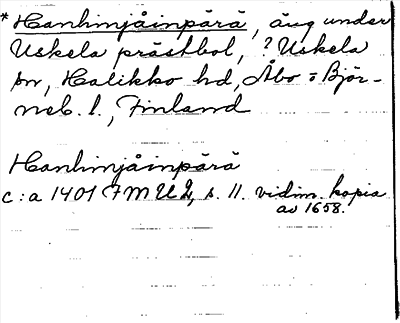 * Hanhinjåinpärä, äng under
Uskela prästbol, ? Uskela
sn, Halikko hd, Åbo = Björ-
neb. l., Finland
Hanhinjåinpärä
c:a 1401 FMU 2, s. 11. vidim. kopia
av 1658.